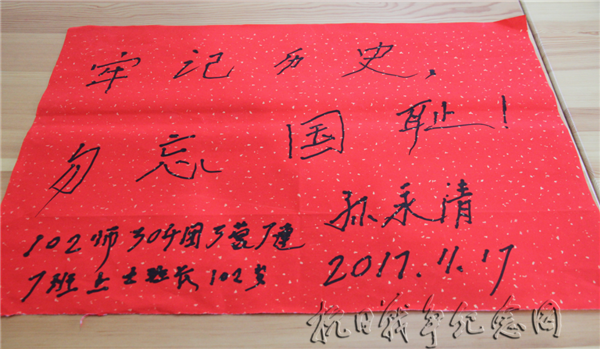 牢记历史,
勿忘国耻!
孙永清
2017.11.17
102师304团3营7连
7班上士班长102岁
抗日战争纪念网